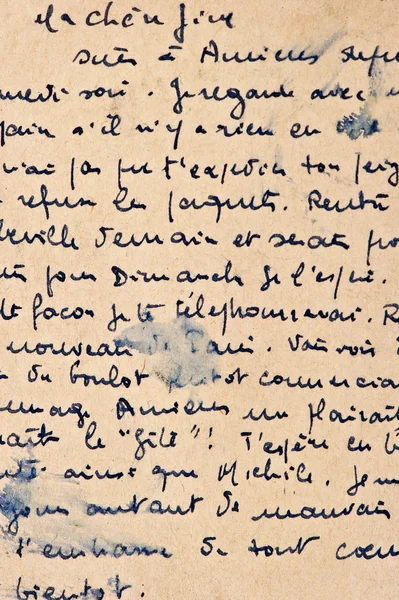 Ma chère
suis à Amiens depu
medi soir. Je regarde avec
s'il n'y a rien en
rai pas pu t'expédier ton
refuse les paquets. Rentre
beville demain et serai
pour Dimanche je l'espère.
te façon je te téléphonerai. R
nouveau de Paris. Vais voir
du boulot plutôt commercia
mage Amiens me plairait
le "gîte"! T'espère en b
ainsi que Michèle. Je
autant de mauvais
t'embrasse de tout cœu
bientôt.